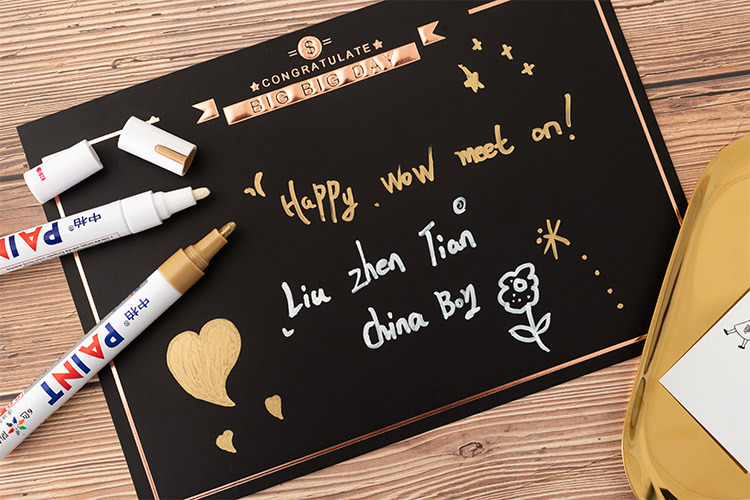 CONGRATULATE
BIG BIG DAY
Happy. wow meet on!
Liu zhen Tian
china Boy
中柏® PAINT
中柏® PAINT